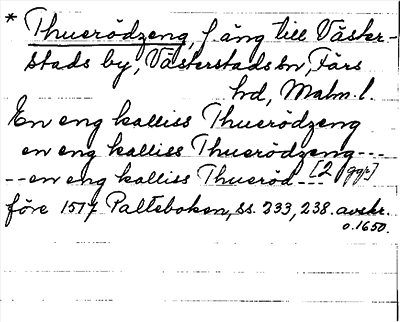 * Thuerödzeng, f. äng till Väster-
stads by, Västerstads sn, Färs
hd, Malm. l.
En eng kalliss Thuerödzeng
en eng kalliss Thuerödzeng ---
-- en eng kalliss Thueröd --- [2 ggr]
före 1517 Palteboken, ss. 233, 238. avskr.
o. 1650.